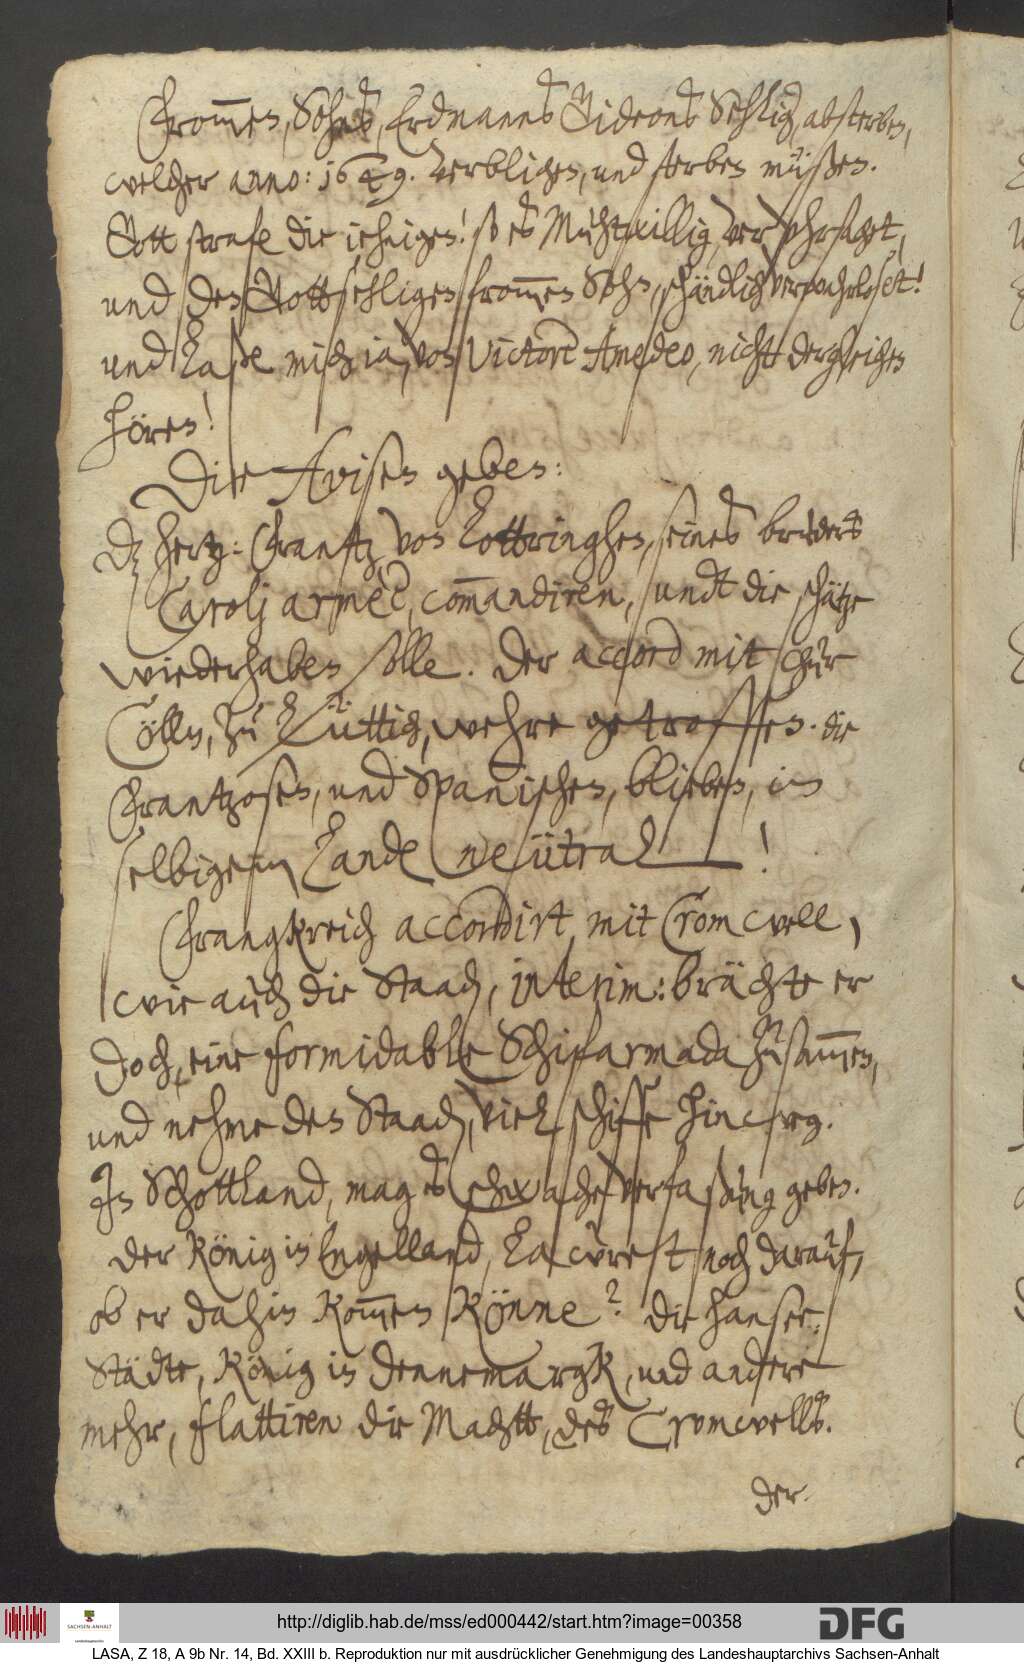 Frommen, Sohns, Erdmanns Gideons Sehlig, absterben,
welcher anno: 1649. verblichen, und sterben müßen.
Gott strafe die jehnigen! so es Muhtwillig, veruhrsachet,
und den Gottsehligen frommen Sohn, schändlich verwahrloset!
und Laße mich ia, von Victore Amedeo, nicht dergleichen
hören!
Die Avisen geben:
dz Hertz: Frantz von Lottringhen, seines bruders
Carolj armèe, commandiren, undt die schätze
wiederhaben solle. Der accord mit Chur
Cölln, zu Lüttich, wehre getroffen. die
Frantzosen, und Spanischen, blieben, in
selbigem Lande neütral!
Frangkreich accordirt, mit Cromwell,
wie auch die Staad, interim: brächte er
doch, eine formidable Schifarmada zusammen,
und nehme den Staad, viel schiffe hinweg.
In Schottland, mag es schwache verfaßung geben.
Der König in Engelland, Lavirest noch darauf,
ob er dahin kommen könne? Die Hansee:
Städte, König in Dennemargk, und andere
mehr, flattiren die Machtt, des Cromwells.
der
http://diglib.hab.de/mss/ed000442/start.htm?image=00358
SACHSEN-ANHALT
DFG
LASA, Z 18, A 9b Nr. 14, Bd. XXIII b. Reproduktion nur mit ausdrücklicher Genehmigung des Landeshauptarchivs Sachsen-Anhalt